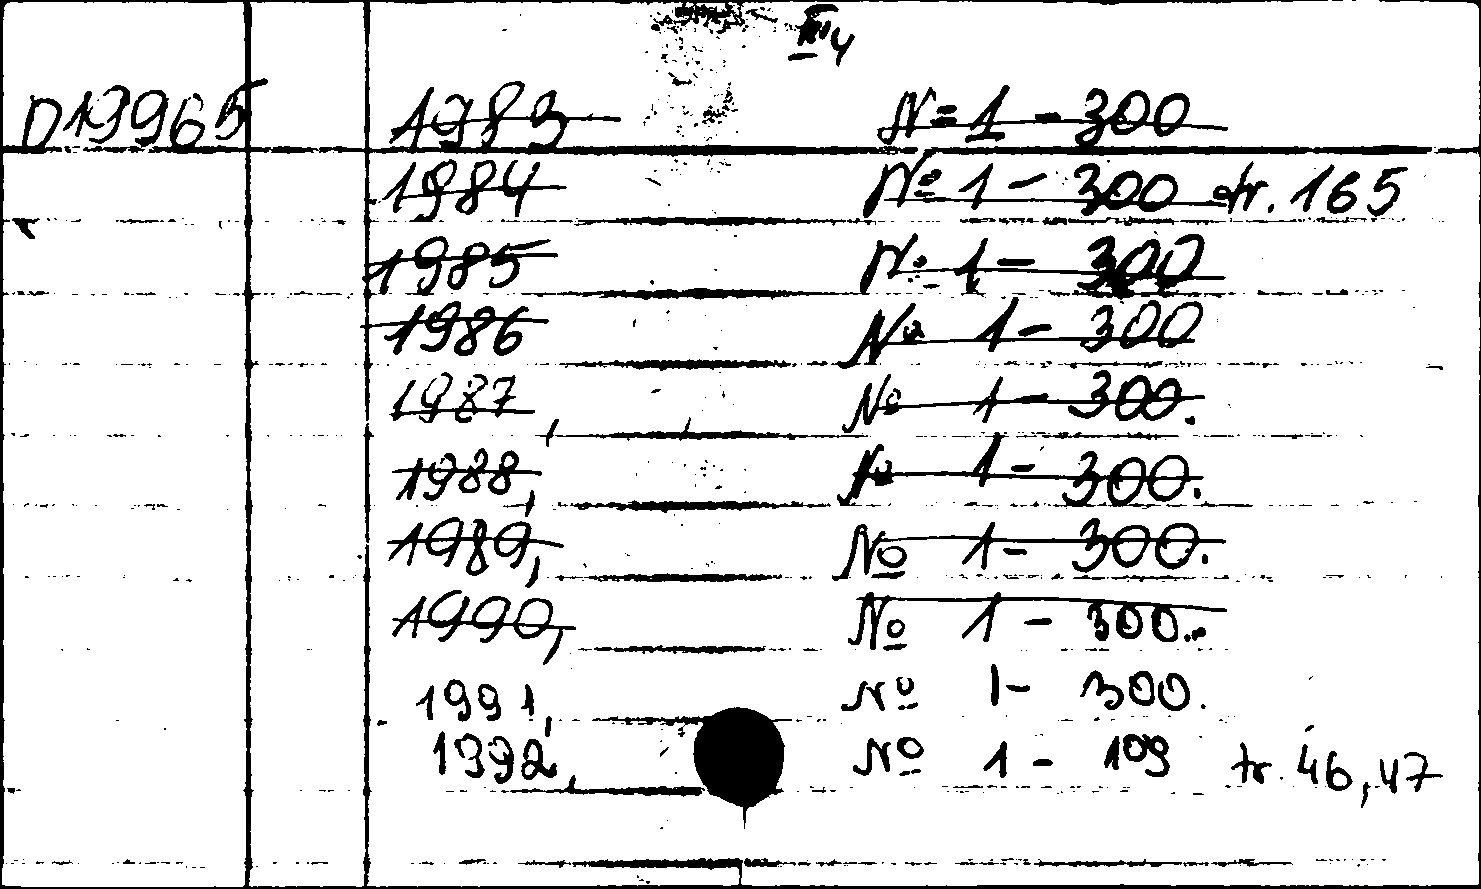 III 4
D19965 1983 № 1 - 300
1984 № 1 - 300 tr. 165
1985 № 1 - 300
1986 № 1 - 300
1987, № 1 - 300.
1988, № 1 - 300.
1989, № 1 - 300.
1990, № 1 - 300.
1991, № 1 - 300.
1992, № 1 - 109 tr. 46, 47